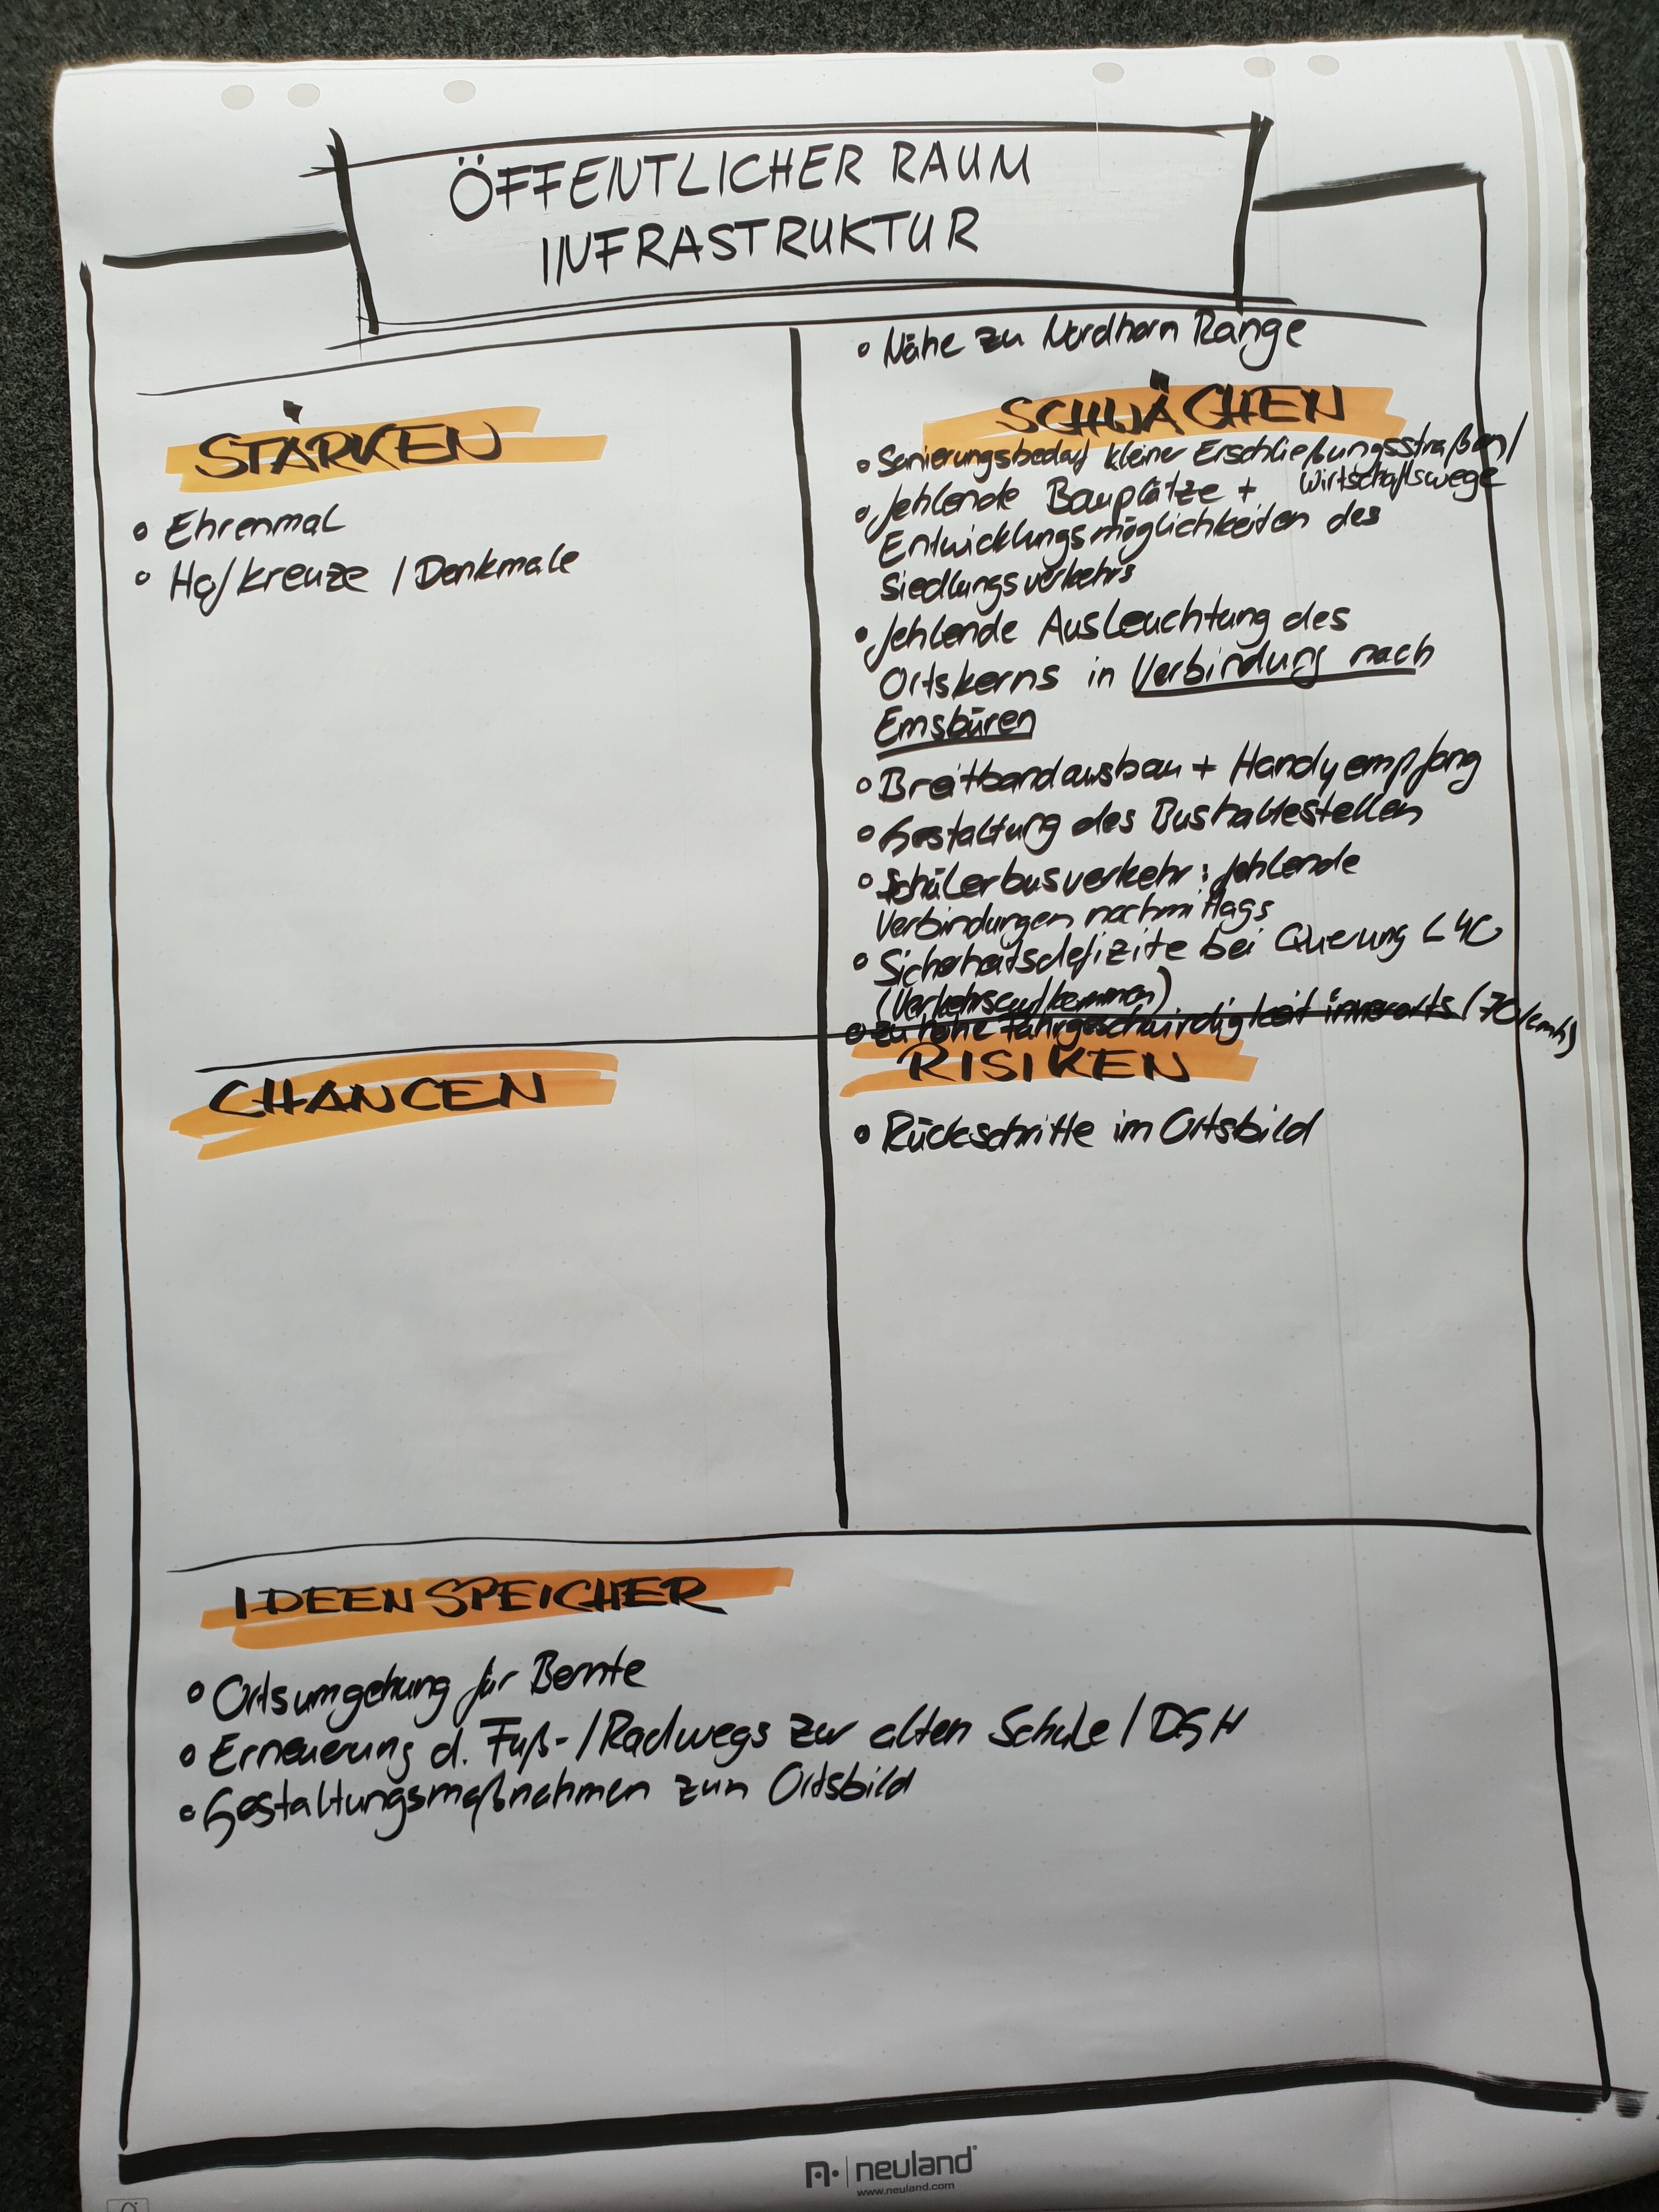 ÖFFENTLICHER RAUM
INFRASTRUKTUR
STÄRKEN
• Ehrenmal
• Hofkreuze / Denkmale
• Nähe zu Nordhorn Range
SCHWÄCHEN
• Sanierungsbedarf kleiner Erschließungsstraßen/
Wirtschaftswege
• fehlende Bauplätze +
Entwicklungsmöglichkeiten des
Siedlungsverkehrs
• fehlende Ausleuchtung des
Ortskerns in Verbindung nach
Emsbüren
• Breitbandausbau + Handyempfang
• Gestaltung des Bushaltestellen
• Schülerbusverkehr: fehlende
Verbindungen nachmittags
• Sicherheitsdefizite bei Querung L40
(Verkehrsaufkommen)
• zu hohe Fahrgeschwindigkeit innerorts (70 km/h)
CHANCEN
RISIKEN
• Rückschritte im Ortsbild
IDEENSPEICHER
• Ortsumgehung für Bernte
• Erneuerung d. Fuß-/Radwegs zur alten Schule / DGH
• Gestaltungsmaßnahmen zum Ortsbild
neuland
www.neuland.com